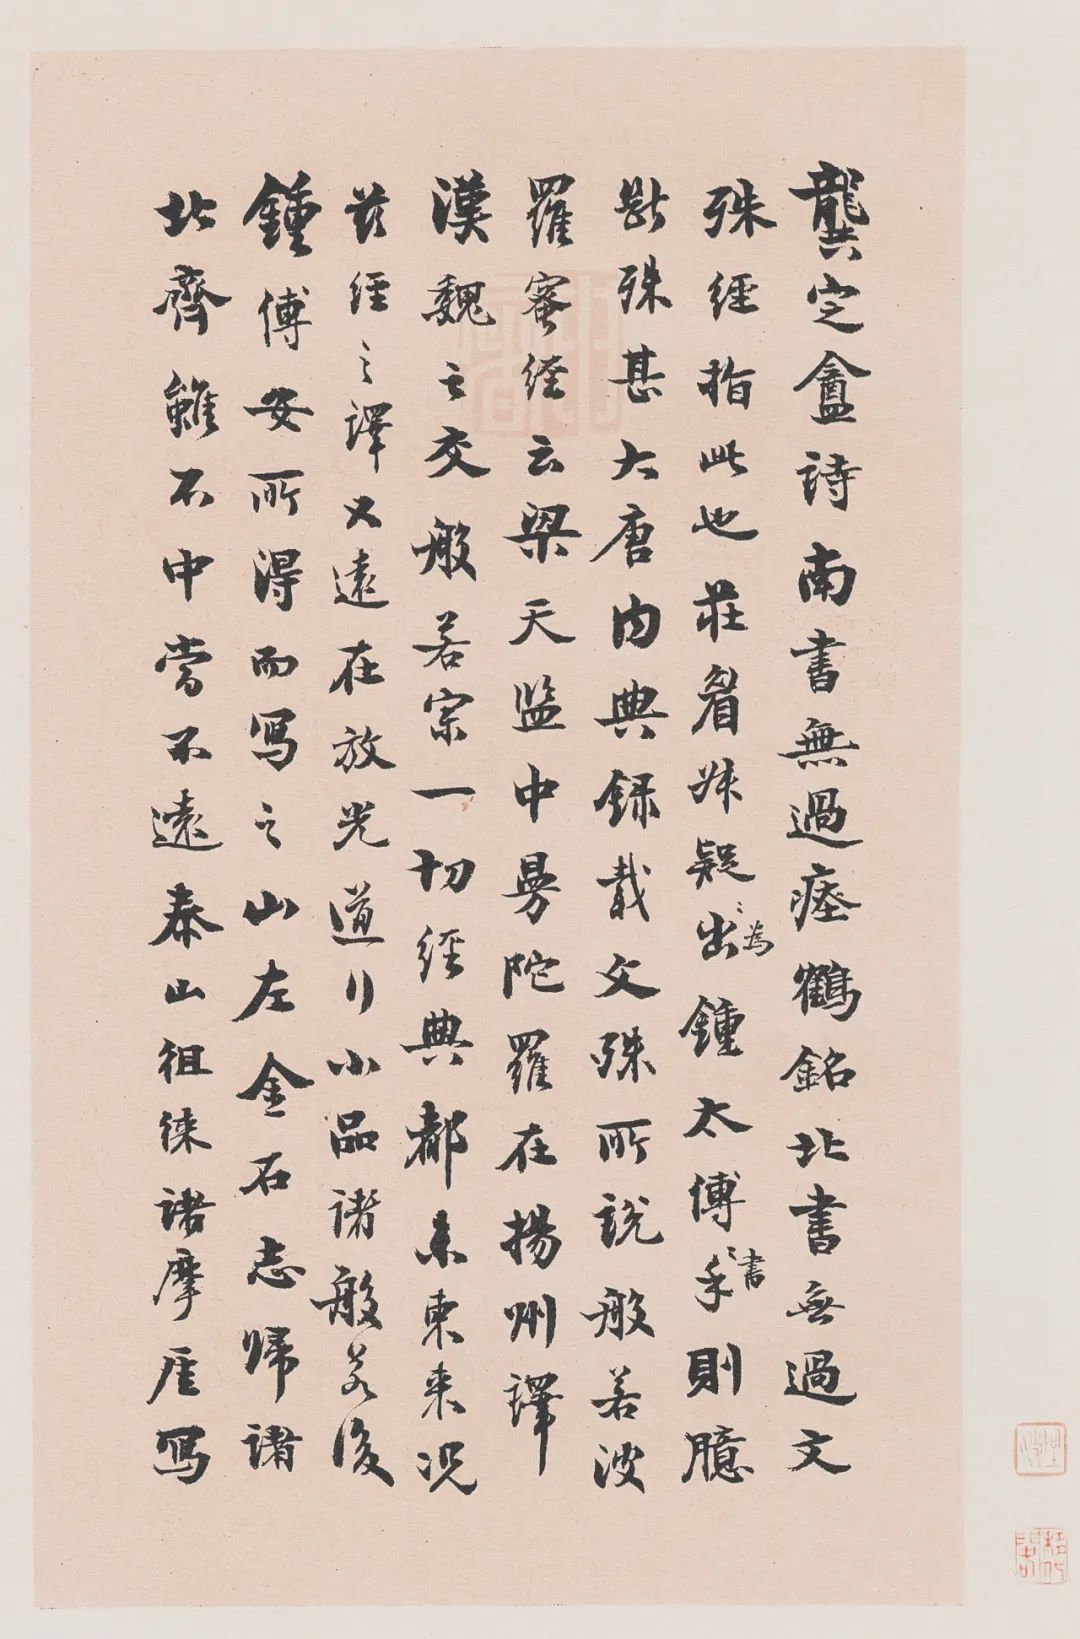 龔定盦詩南書無過瘞鶴銘北書無過文
殊經指此也莊眉妹疑出鍾太傅手則臆
為
書
斷殊甚大唐内典録載文殊所說般若波
羅蜜經云梁天監中曼陀羅在揚州譯
漢魏之交般若宗一切經典都未東来況
茲經之譯又遠在放光道行小品諸般若後
鍾傅安所得而寫之山左金石志歸諸
北齊雖不中當不遠泰山徂徠諸摩崖寫